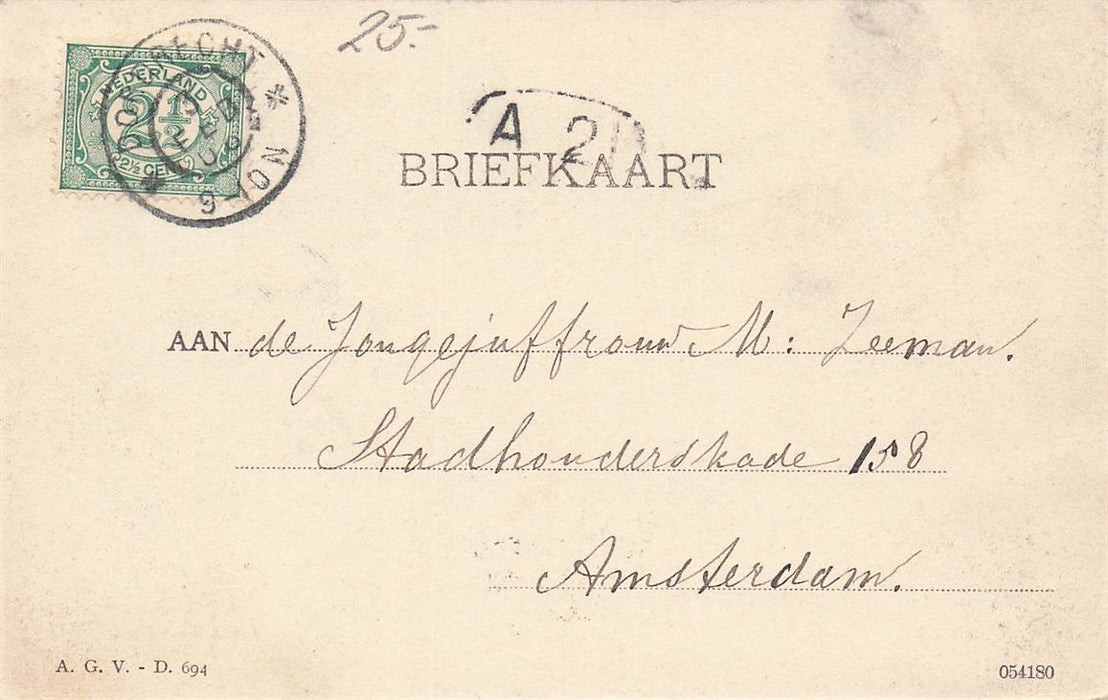 25.-
DORDRECHT
NEDERLAND
2½
2½ CENT
FEB
9-10 N
A 2
BRIEFKAART
AAN de Jongejuffrouw M: Zeeman.
Stadhouderskade 158
Amsterdam.
A. G. V. - D. 694
054180